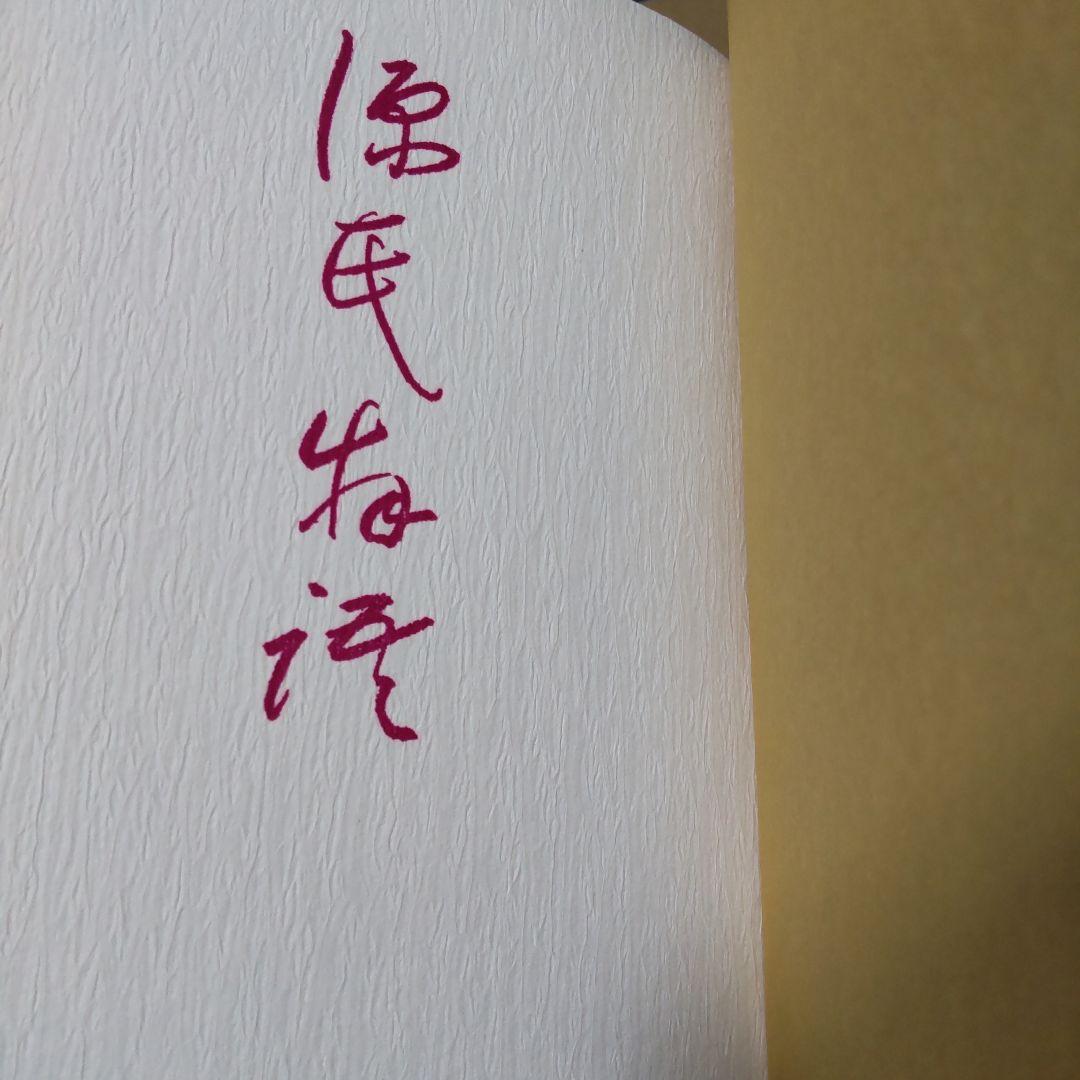 源氏物語